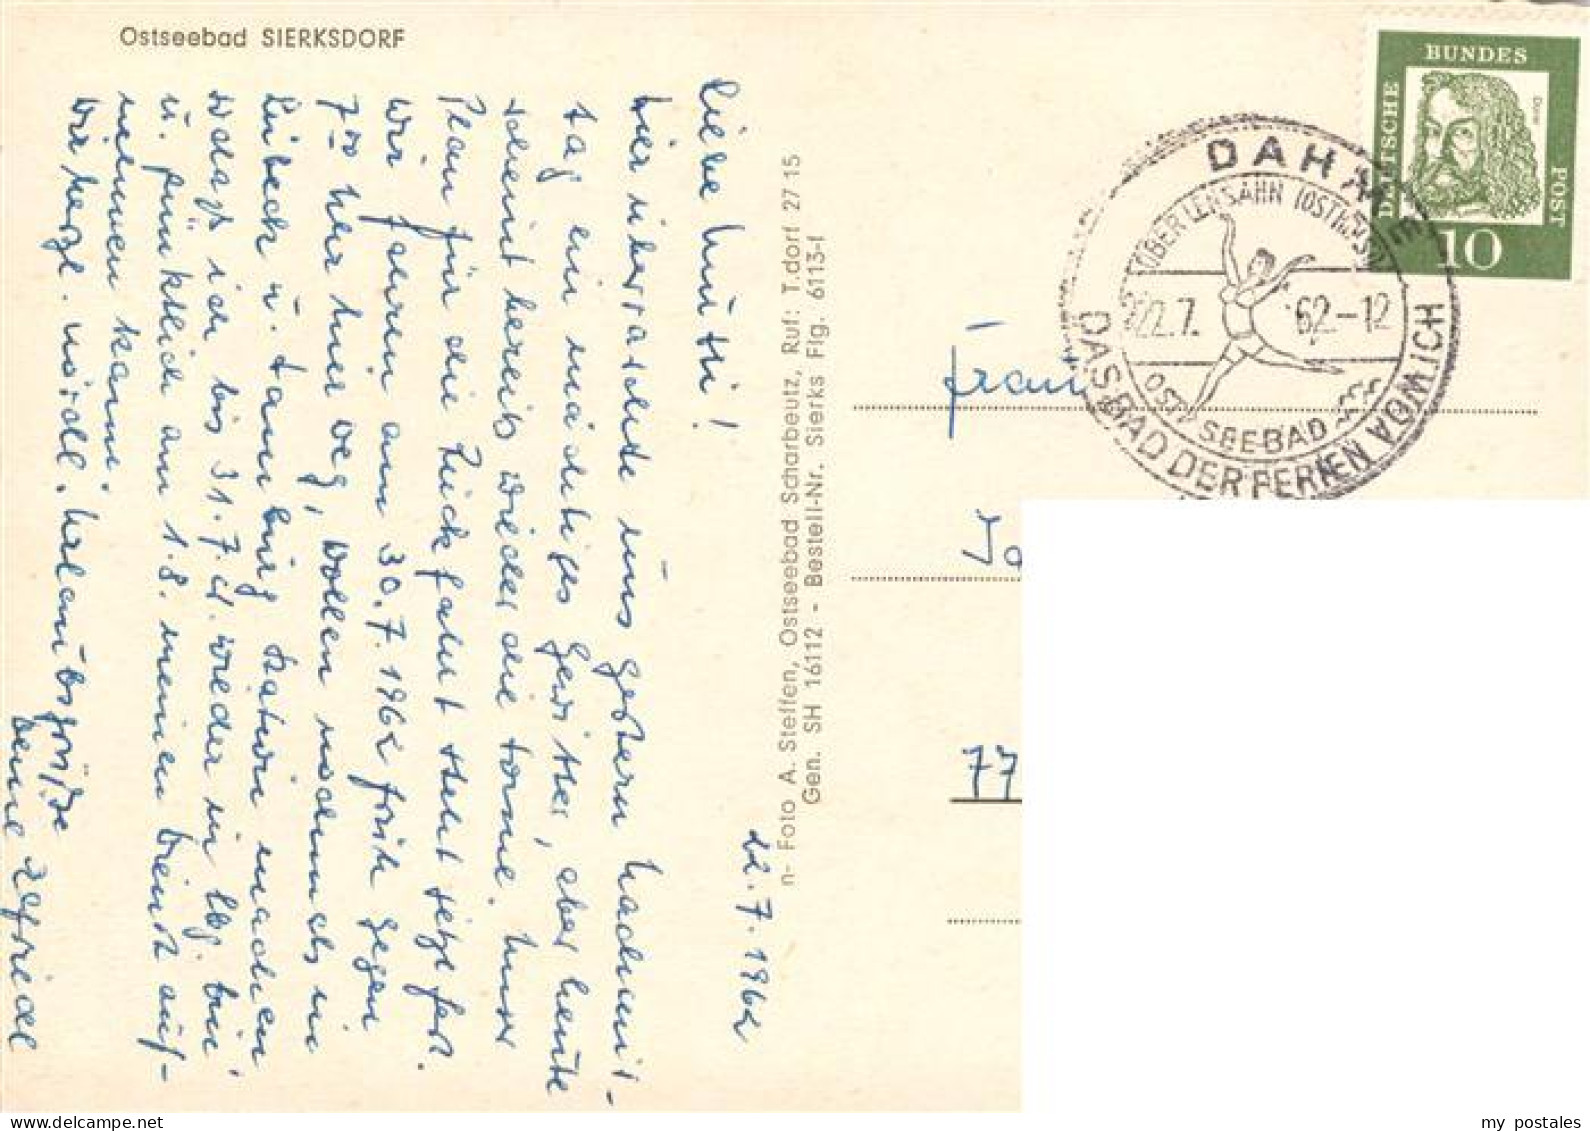 Ostseebad SIERKSDORF
22.7.1962
Liebe Mutti!
Hier überraschte uns gestern Nachmit-
tag ein mächtiges Gewitter, aber heute
scheint bereits wieder die Sonne. Unser
Plan für die Rückfahrt steht jetzt fest.
Wir fahren am 30.7.1962 früh gegen
7°° Uhr hier weg, wollen nochmals in
Lübeck u. Hamburg Station machen
sodaß ich bis 31.7. wieder in bin
u. pünktlich am 1.8. meinen Dienst auf-
nehmen kann.
Dir herzl. Urlaubsgrüße
Deine
n- Foto A. Steffen, Ostseebad Scharbeutz, Ruf: T.dorf 27 15
Gen. SH 16112 - Bestell-Nr. Sierks Flg. 6113-f
DEUTSCHE
BUNDES
POST
Dürer
10
DAHME
ÜBER LENSAHN (OSTHOLST)
22.7.62-12
OSTSEEBAD
DAS BAD DER FERIEN
Frau
77
my postales